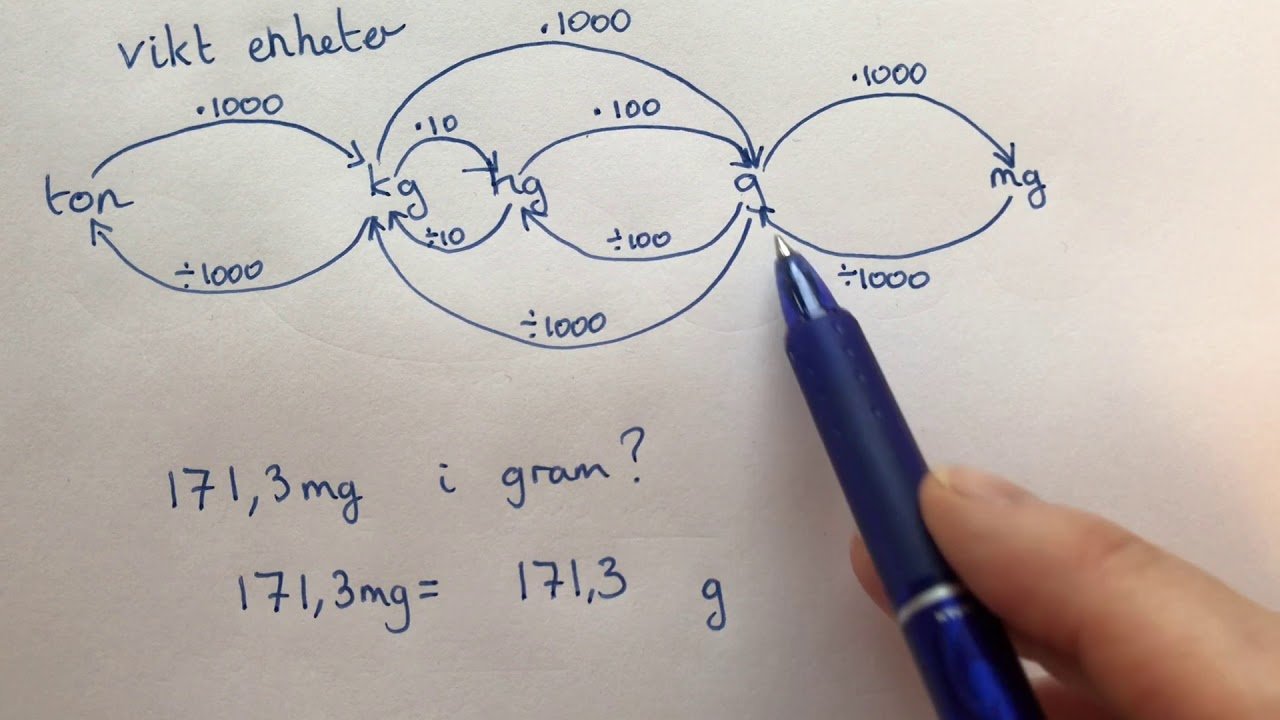 vikt enheter
·1000
·1000
·10
·100
·1000
ton kg hg g mg
÷1000
÷10
÷100
÷1000
÷1000
171,3mg i gram?
171,3mg= 171,3 g